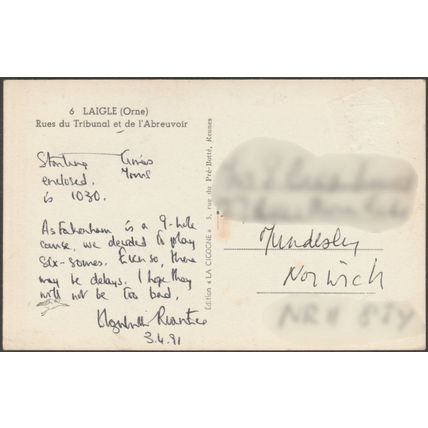 6 LAIGLE (Orne)
Rues du Tribunal et de l'Abreuvoir
Starting Times
enclosed. Yours
is 1030.
As Fakenham is a 9-hole
course, we decided to play
six-somes. Even so, there
may be delays. I hope they
will not be too bad.
3.4.91
Edition « LA CIGOGNE » 3, rue du Pré-Botté, Rennes
Mundesley
Norwich